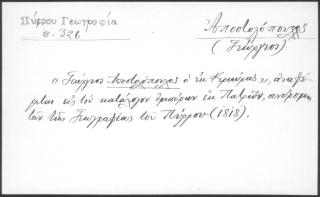 Πύρρου Γεωγραφία
σ. 326
Ἀποστολόπουλος
(Γεώργιος)
ὁ Γεώργιος Ἀποστολόπουλος ὁ ἐκ Κερκύρας, ἀναφέ-
ρεται εἰς τὸν κατάλογον ἐμπόρων ἐκ Πατρῶν, συνδρομη-
τῶν τῆς Γεωγραφίας τοῦ Πύρρου (1818).